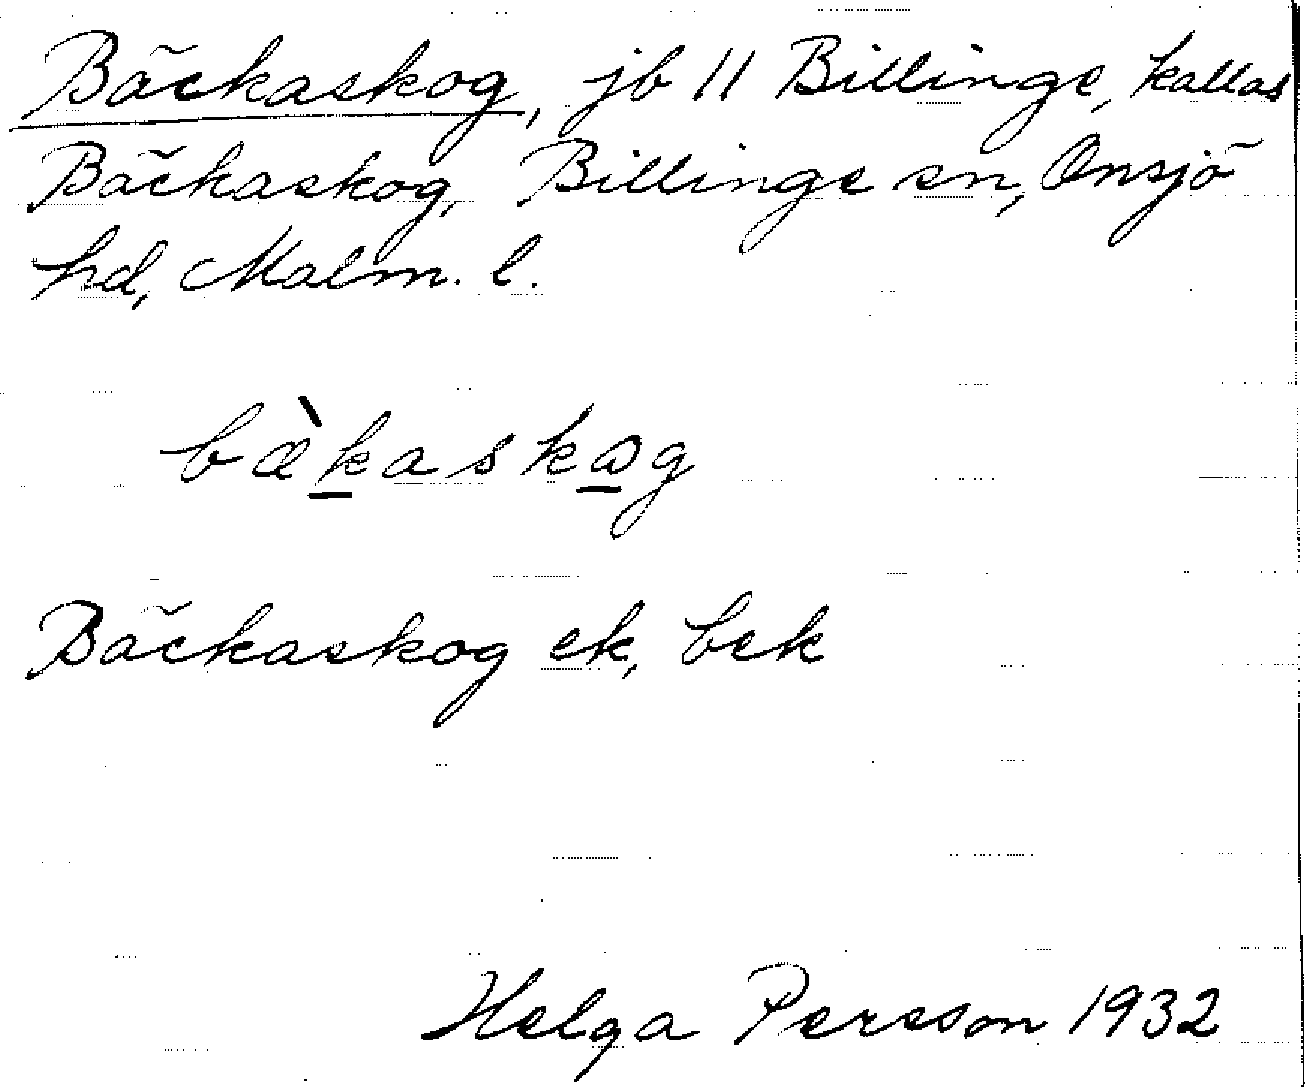 Bäckaskog, jb 11 Billinge, kallas
Bäckaskog, Billinge sn, Onsjö
hd, Malm. l.
bæ̀k̲askɷ̲g
Bäckaskog ek, bek
Helga Persson 1932